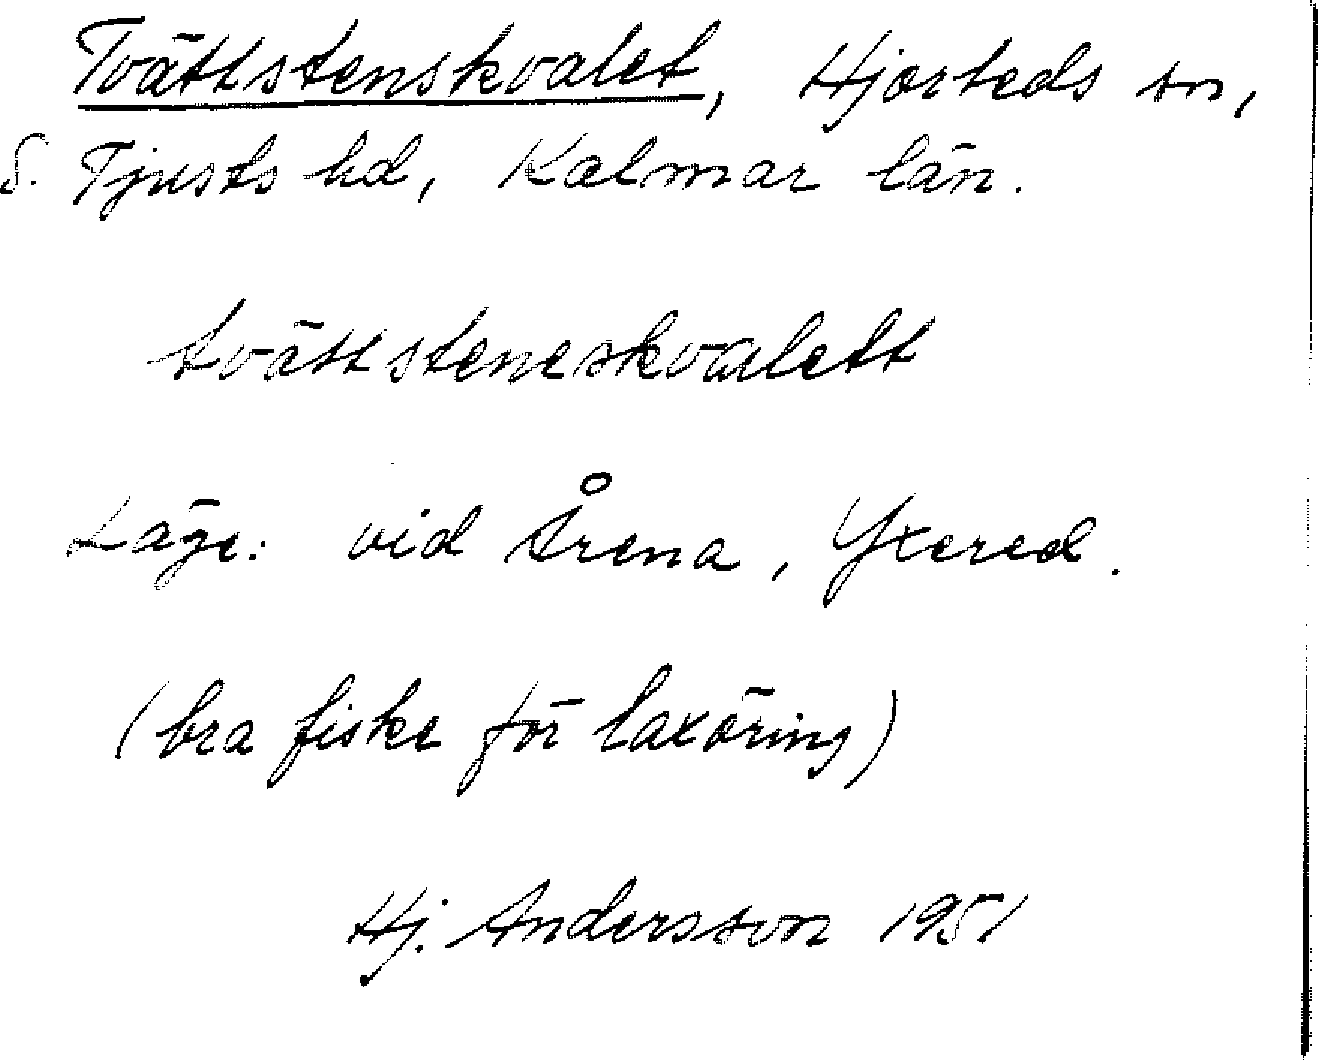 Tvättstenskvalet, Hjorteds sn,
S. Tjusts hd, Kalmar län.
tvättsteneskvalett
Läge: vid Årena, Yxered.
(bra fiske för laxöring)
Hj. Andersson 1951